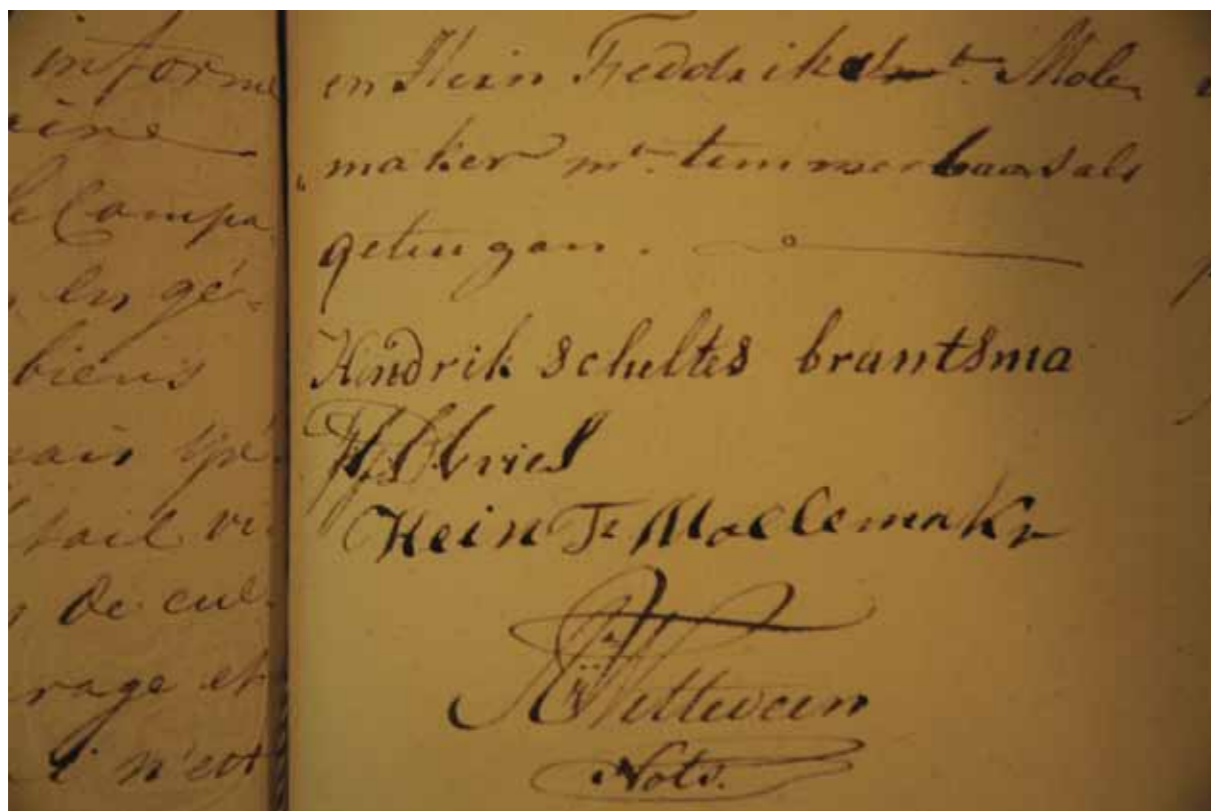 informe
eine
le Compa
en gé-
biens
mais spé-
tail
de cul-
rage et
n'est
en Hein Feddriks Mole
„maker mr. temmerbaas als
getuigen.
Hendrik scheltes brantsma
Vries
Hein Fr Mollemakr
Witteveen
Nots.